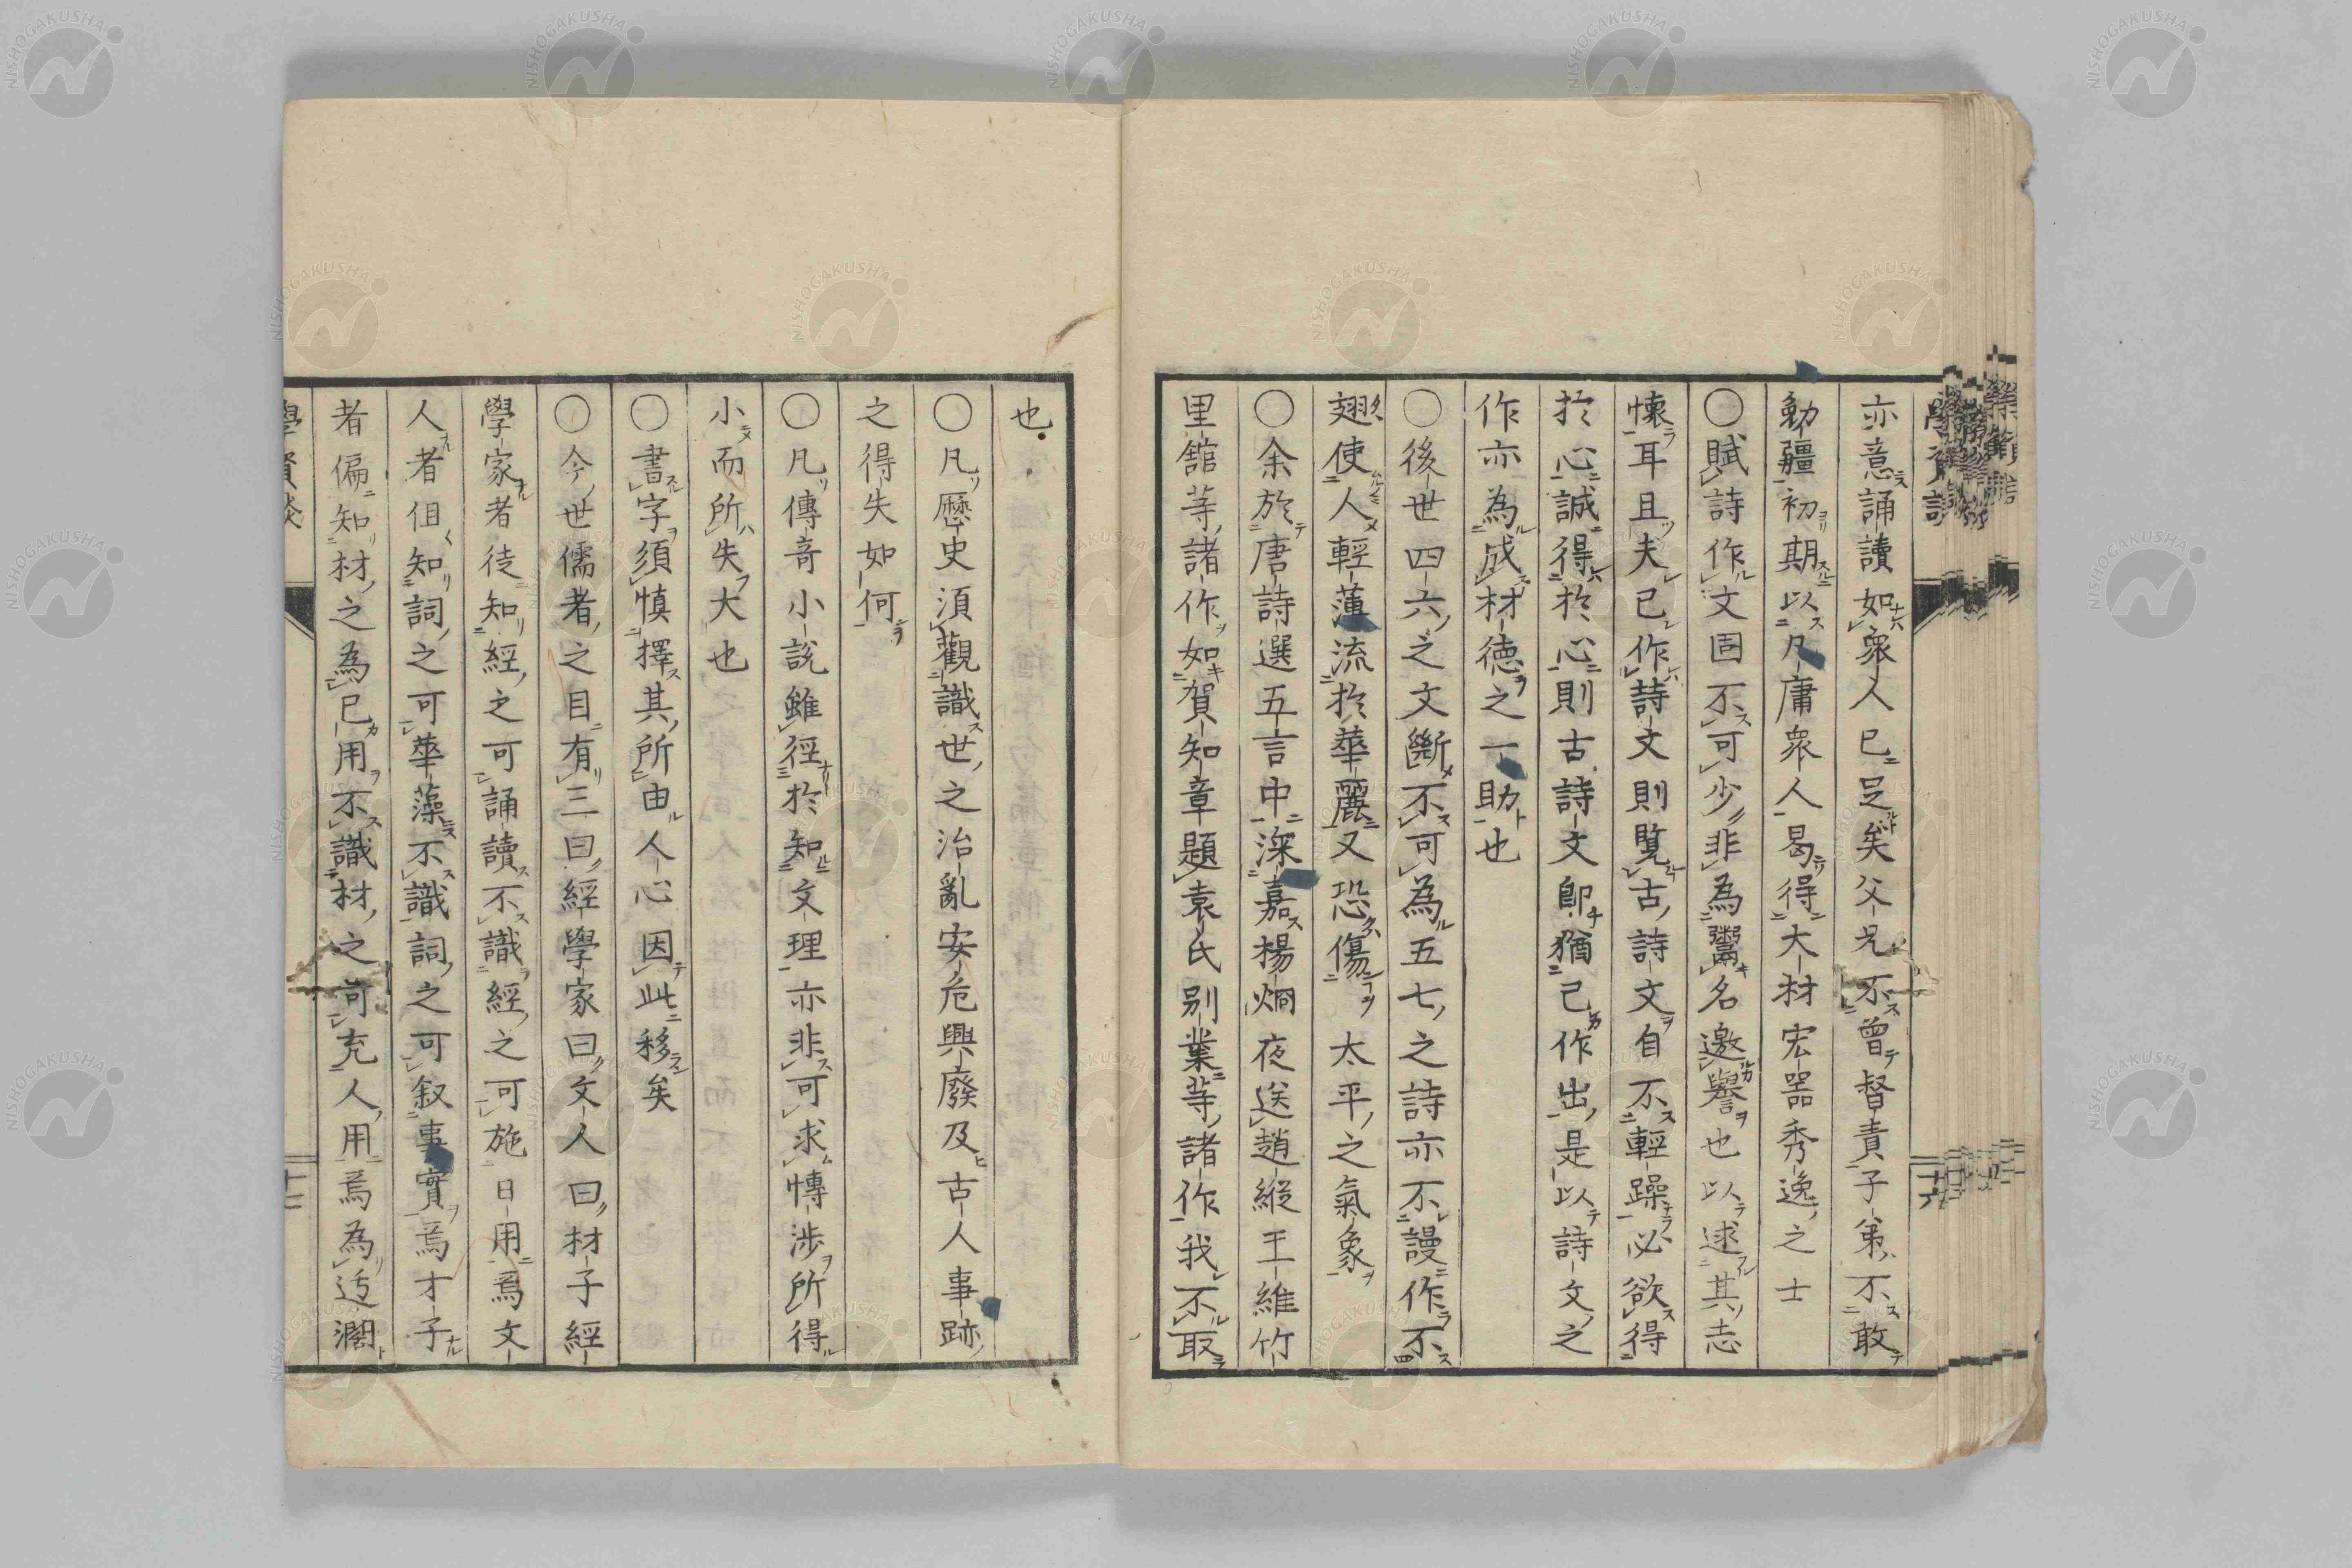 亦意誦讀如衆人已足矣父兄不曾督責子弟不敢
勅彊初期以凡庸衆人曷得大材宏器秀逸之士
〇賦詩作文固不可少非為鬻名邀譽也以逑其志
懷耳且夫已作詩文則覽古詩文自不輕躁必欲得
於心誠得於心則古詩文即猶己作出是以詩文之
作亦為成材徳之一助也
〇後世四六之文斷不可為五七之詩亦不謾作不
翅使人輕薄流於華麗又恐傷太平之氣象
〇余於唐詩選五言中深嘉楊烱夜送趙縱王維竹
里舘等諸作如賀知章題袁氏別業等諸作我不取
也
〇凡歷史須觀識世之治亂安危興廢及古人事跡
之得失如何
〇凡傳奇小説雖徑於知文理亦非可求慱渉所得
小而所失大也
〇書字須慎擇其所由人心因此移矣
〇今世儒者之目有三曰經學家曰文人曰材子經
學家者徒知經之可誦讀不識經之可施日用焉文
人者但知詞之可華藻不識詞之可叙事實焉才子
者偏知材之為已用不識材之可充人用焉為迃濶